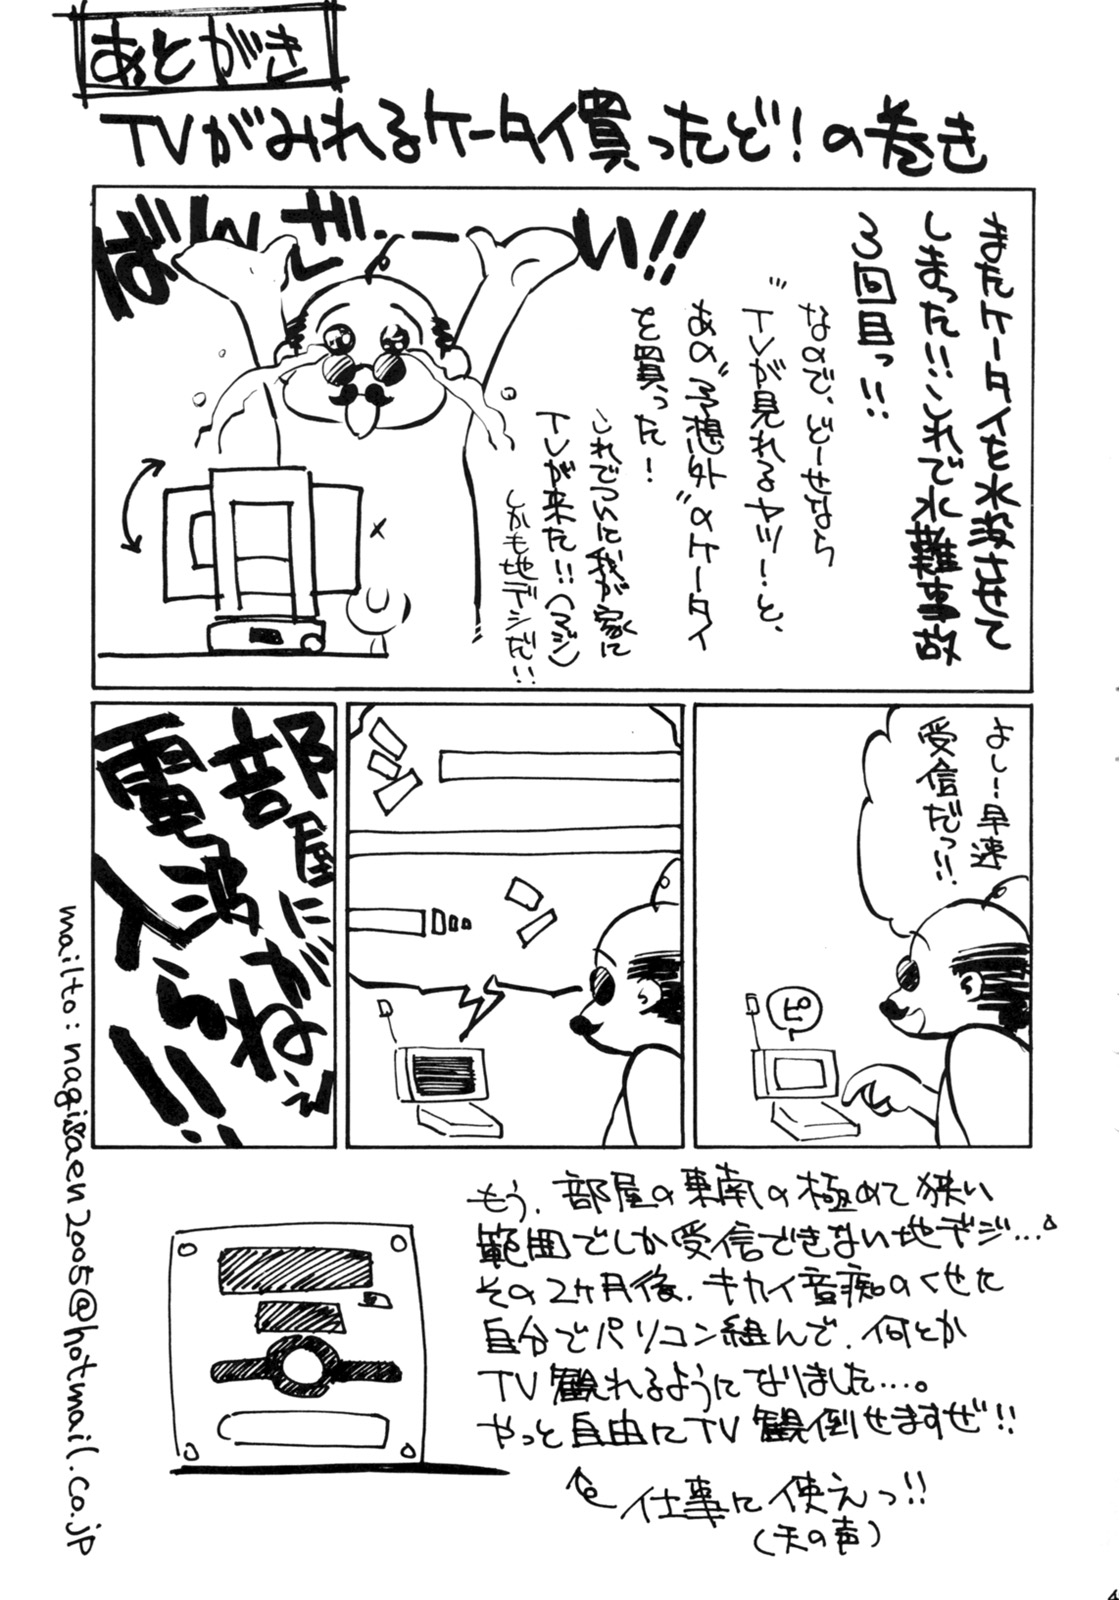 あとがき
TVがみれるケータイ買ったど!の巻き
ばんざーい!!
またケータイを水没させて
しまった!!これで水難事故
3回目っ!!
なので、どーせなら
"TVが見れるヤツ!"と、
あの"予想外"のケータイ
を買った!
これでついに我が家に
TVが来た!!(マジ)
しかも地デジだ!!
よし!早速
受信だっ!!
ピ
部屋に
電波がねぇ
入らー!!
もう、部屋の東南の極めて狭い
範囲でしか受信できない地デジ…。
その2ヶ月後、キカイ音痴のくせに
自分でパソコン組んで、何とか
TV観れるようになりました…。
やっと自由にTV観倒せますぜ!!
仕事に使えっ!!
(天の声)
mailto:nagisaen2005@hotmail.co.jp
4